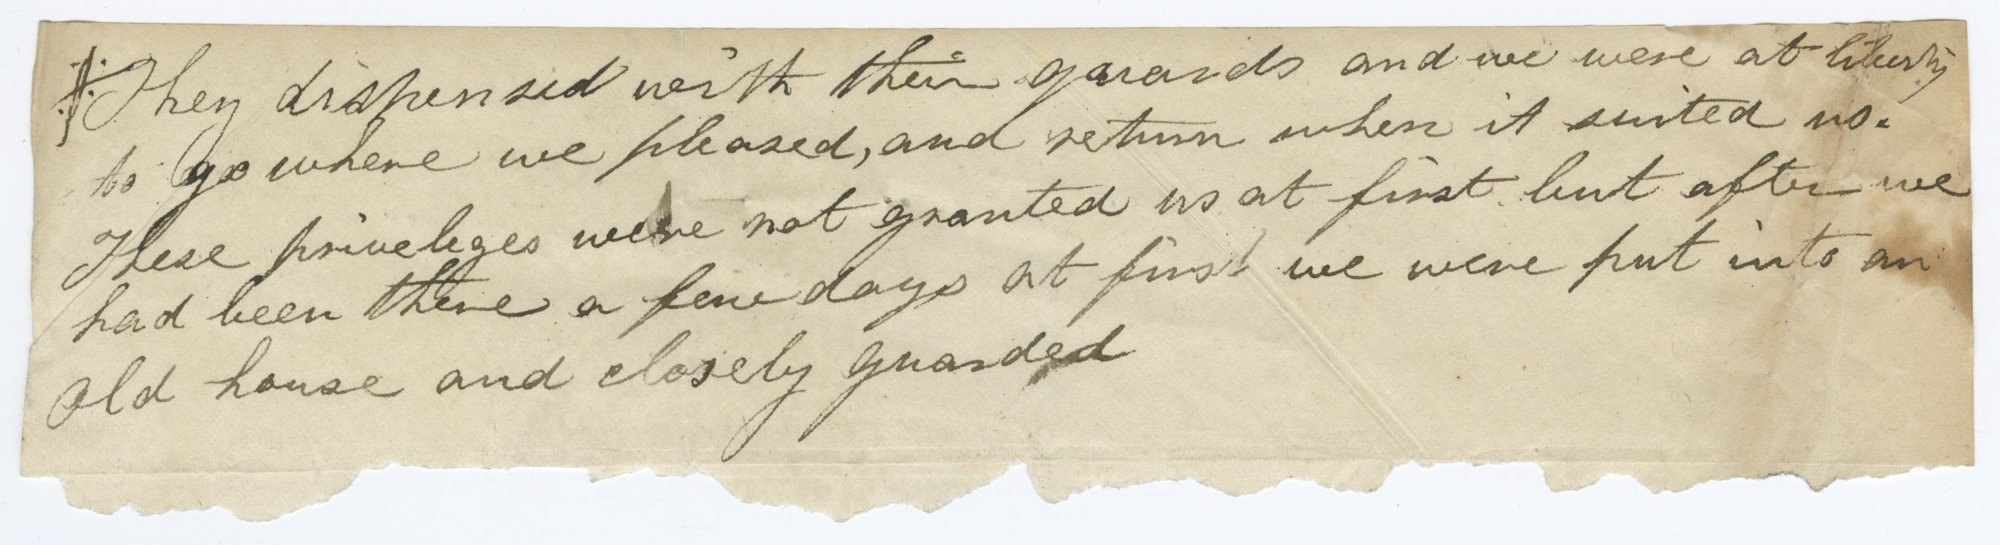 They dispensed with their guards and we were at liberty
to go where we pleased, and return when it suited us.
These priveleges were not granted us at first but after we
had been there a few days at first we were put into an
old house and closely guarded